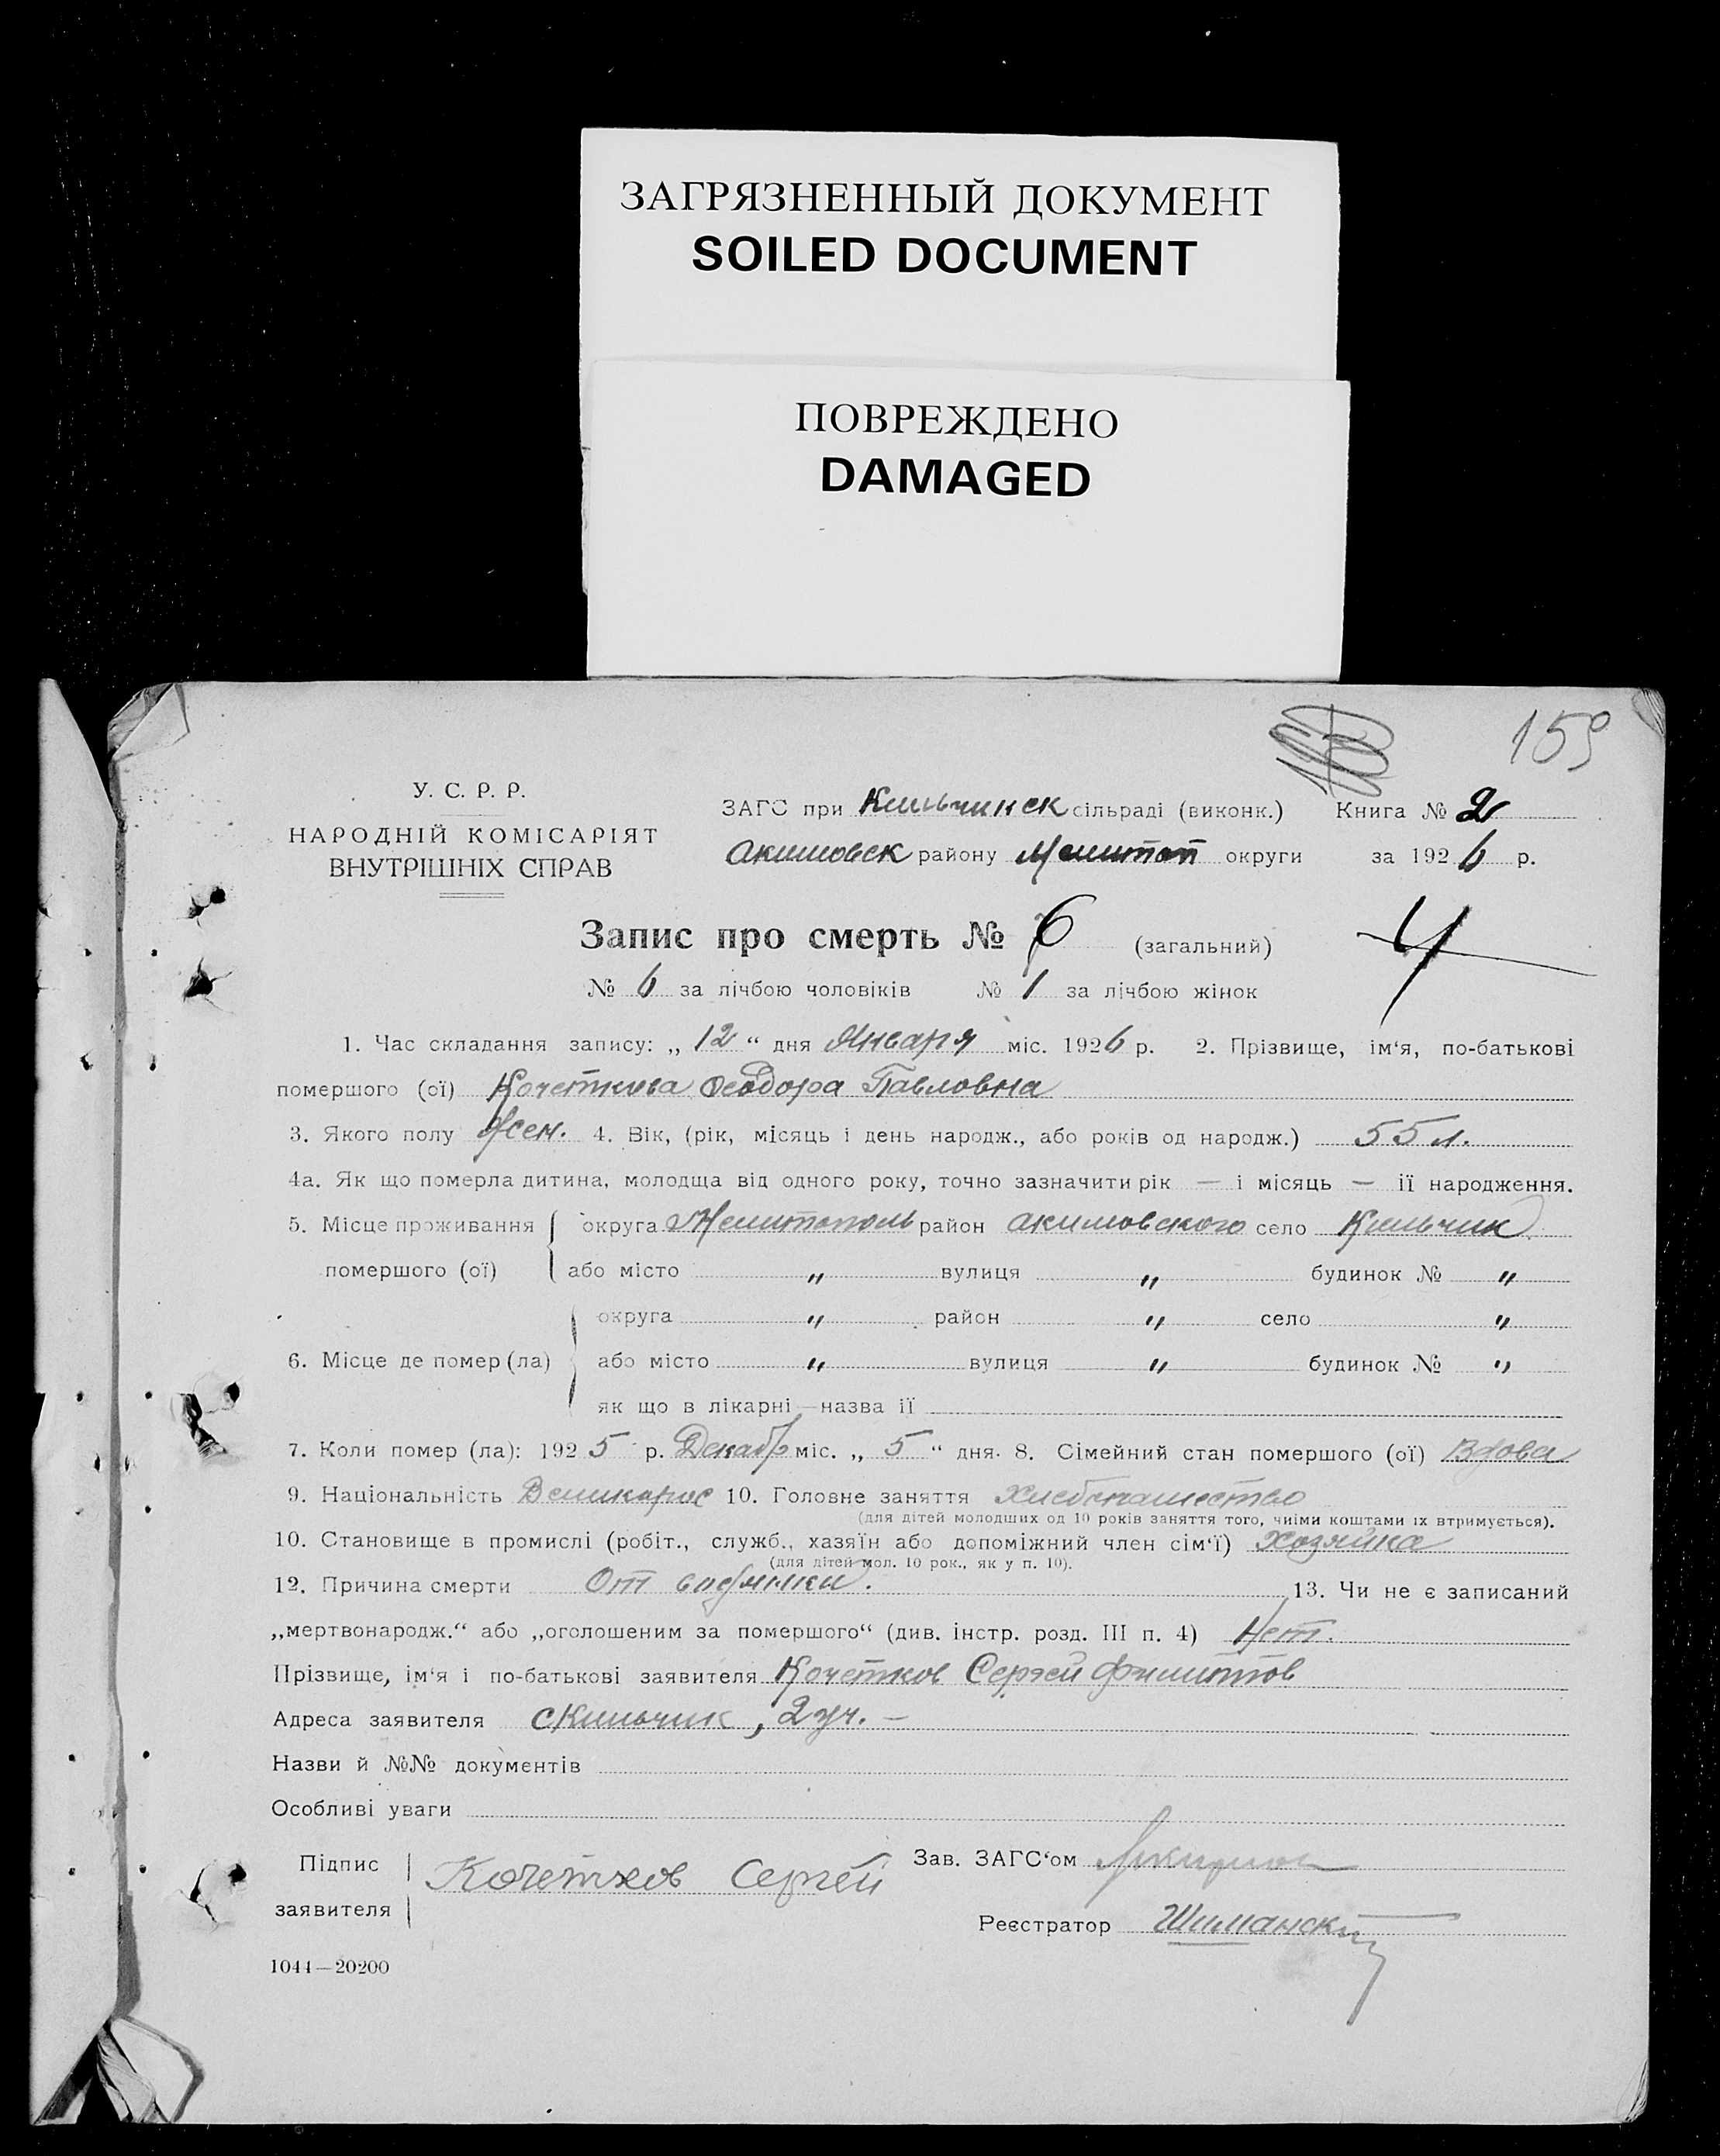 ЗАГРЯЗНЕННЫЙ ДОКУМЕНТ
SOILED DOCUMENT
ПОВРЕЖДЕНО
DAMAGED
159
У. С. Р. Р.
НАРОДНІЙ КОМІСАРІЯТ
ВНУТРІШНІХ СПРАВ
ЗАГС при Кильчинск сільраді (виконк.) Книга № 2
Акимовск району Мелитоп округи за 1926 р.
Запис про смерть № 6 (загальний)
4
№ 6 за лічбою чоловіків № 1 за лічбою жінок
1. Час складання запису: „ 12 “ дня Января міс. 1926 р. 2. Прізвище, ім‘я, по-батькові
помершого (ої) Кочеткова Феодора Павловна
3. Якого полу Жен. 4. Вік, (рік, місяць і день народж., або років од народж.) 55 л.
4а. Як що померла дитина, молодща від одного року, точно зазначити рік — і місяць — ії народження.
5. Місце проживання округа Мелитополь район Акимовского село Кильчик
помершого (ої) або місто " вулиця " будинок № "
округа " район " село "
6. Місце де помер (ла) або місто " вулиця " будинок № "
як що в лікарні—назва ії
7. Коли помер (ла): 1925 р. Декабр міс. „ 5 “ дня. 8. Сімейний стан помершого (ої) Вдова
9. Національність Великорос 10. Головне заняття Хлебопашество
(для дітей молодших од 10 років заняття того, чиїми коштами їх втримується).
10. Становище в промислі (робіт., служб., хазяїн або допоміжний член сім‘ї) Хозяйка
(для дітей мол. 10 рок., як у п. 10).
12. Причина смерти От 13. Чи не є записаний
„мертвонародж.“ або „оголошеним за помершого“ (див. інстр. розд. III п. 4) Нет.
Прізвище, ім‘я і по-батькові заявителя Кочетков Сергей Филиппов
Адреса заявителя с Кильчик, 2 уч. —
Назви й №№ документів
Особливі уваги
Підпис Кочетков Сергей Зав. ЗАГС‘ом
заявителя
Реєстратор Шиманский
1044—20200